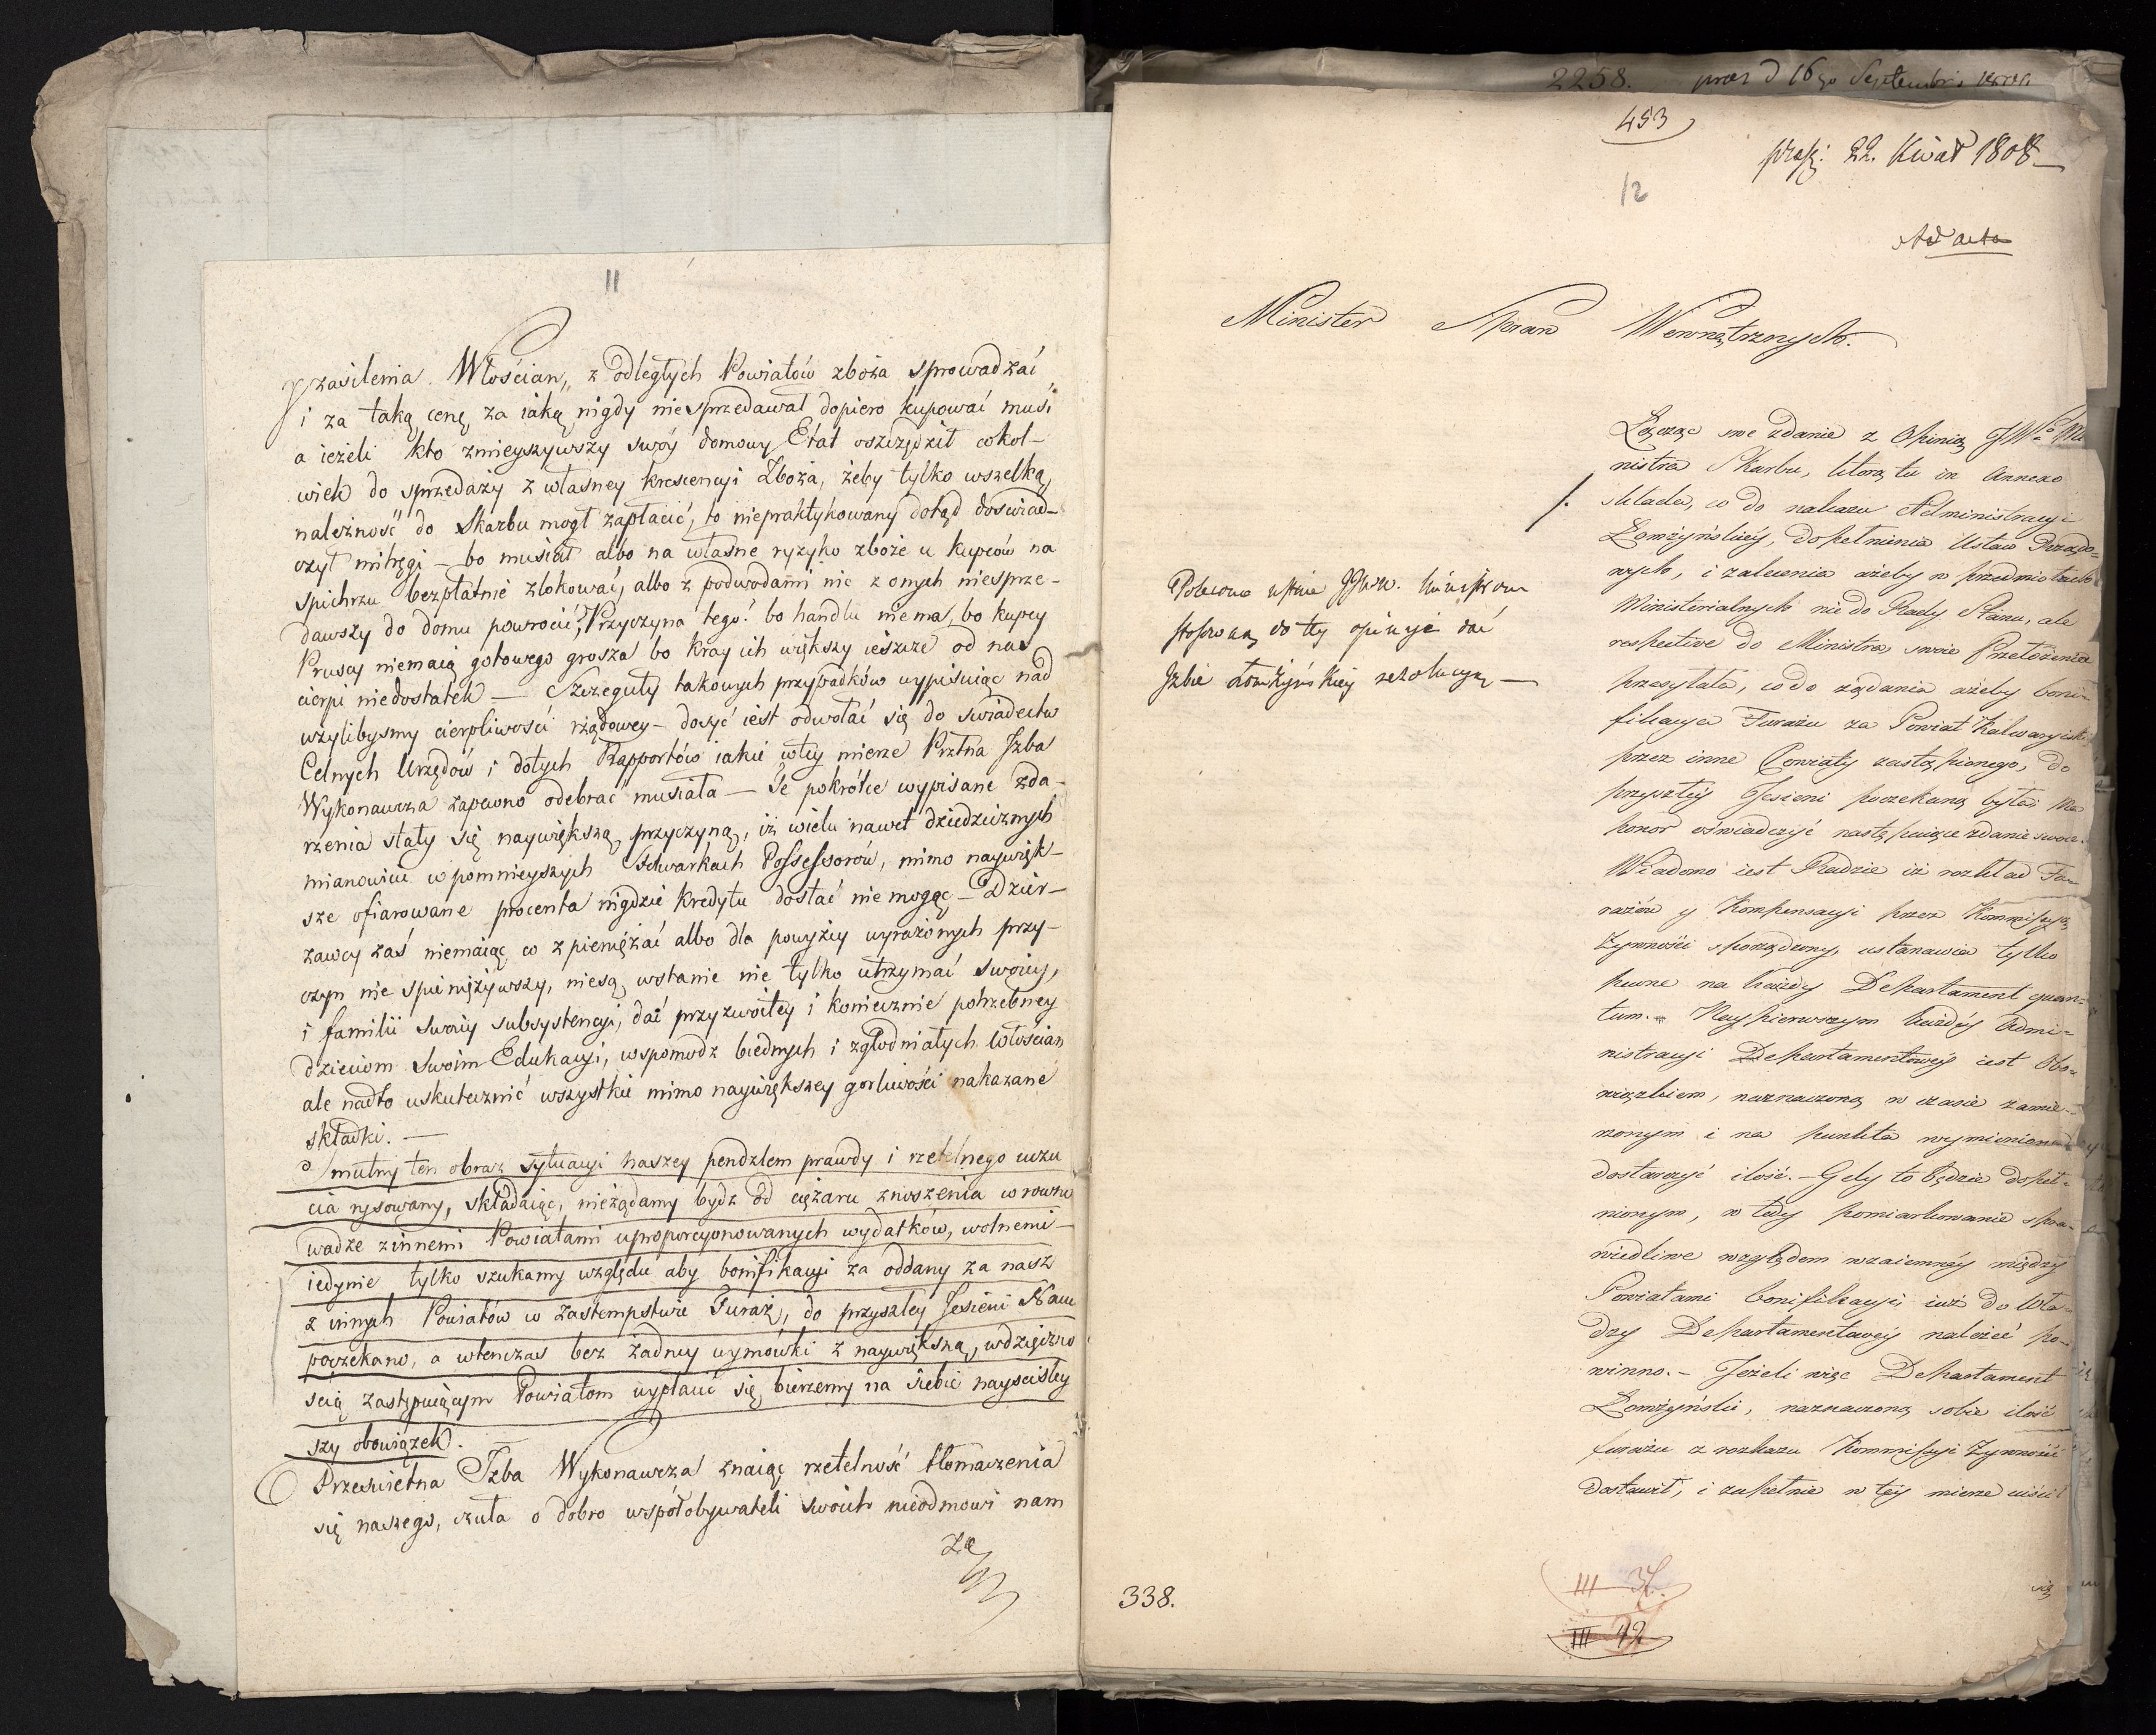 11
zasilenia Włościan, z odległych Powiatów zboża sprowadzać
i za taką cenę za iaką nigdy niesprzedawał dopiero kupować musi
a ieżeli kto zmieyszywszy swóy domowy Etat oszczędził cokol-
wiek do sprzedaży z własney krescencyi Zboża, żeby tylko wszelką
należność do Skarbu mogł zapłacić, to niepraktykowany dotąd doswiad-
czył mitręgi – bo musiał albo na własne ryzyko zboże u kupców na
spichrzu bezpłatnie zlokować, albo z podwodami nic z onych niesprze-
dawszy do domu powrócić, Przyczyna tego? bo handlu niema, bo kupcy
Pruscy niemaią gotowego grosza bo kray ich większy ieszcze od nas
cierpi niedostatek – Szczeguły takowych przypadków wypisuiąc nad
użylibysmy cierpliwości rządowey – dosyć iest odwołać się do swiadectw
Celnych Urzędów i dotych Rapportów iakie wtey mierze Prztna Izba
Wykonawcza zapewno odebrać musiała – Te pokrótce wypisane zda-
rzenia stały się naywiększą przyczyną, iż wielu nawet dziedzicznych
mianowicie w pomnieyszych Folwarkach Possessorów, mimo naywięk-
sze ofiarowane procenta nigdzie kredytu dostać nie mogąc – Dzier-
zawcy zaś niemaiąc co zpieniężać albo dla powyżey wyrażonych przy-
czyn nie spieniężywszy, niesą wstanie nie tylko utrzymać swoiey,
i familii swoiey subsystencyi, dać przyzwoitey i koniecznie potrzebney
dzieciom swoim Edukacyi, wspomodz biednych i zgłodniałych Włościan
ale nadto uskutecznić wszystkie mimo naywiększey gorliwości nakazane
składki. —
Smutny ten obraz sytuacyi naszey pendzlem prawdy i rzetelnego uczu
cia rysowany, składaiąc, nieżądamy bydz od ciężaru znoszenia w rowno
wadze zinnemi Powiatami uproporcyonowanych wydatków, wolnemi –
iedynie tylko szukamy względu aby bonifikacyi za oddany za nasz
z innych Powiatów w Zastempstwie Furaż, do przyszłey Jesieni Nam
poczekano, a wtenczas bez żadney wymówki z naywiększą wdzięczno
scią zastępuiącym Powiatom wypłacić się bierzemy na siebie nayściśley
szy obowiązek. —
Prześwietna Izba Wykonawcza znaiąc rzetelność tłomaczenia
się naszego, czuła o dobro współobywateli swoich nieodmowi nam
2258. praes d 16go Septembris
453
praes: 22. Kwiet 1808
12
Ad acta
Minister Spraw Wewnętrznych.
Łącząc swe zdanie z Opinią JWo Mi
nistra Skarbu, którą tu in Annexo
składa, co do nakazu Administracyi
Łomżyńskiey, dopełnienia Ustaw Rządo-
wych, i zalecenia ażeby w przedmiotach
Ministerialnych nie do Rady Stanu, ale
respective do Ministra swoie Przełożenia
przesyłała, codo żądania ażeby boni-
fikacya Furażu za Powiat Kalwaryiski
przez inne Powiaty zastąpionego, do
przyszłey Jesieni poczekaną była: Ma
honor oświadczyć następuiące zdanie swoie.
Wiadomo iest Radzie iż rozkład Fu-
rażów y Kompensacyi przez Kommissyą
Żywności sporządzony, ustanawia tylko
pewne na każdy Departament quan-
tum. – Naypierwszym każdey Admi-
nistracyi Departamentowey iest Obo-
wiązkiem, naznaczoną w czasie zamie-
rzonym i na punkta wymienione
dostarczyć ilość. – Gdy to będzie dopeł-
nionym, w tedy pomiarkowanie spra-
wiedliwe względem wzaiemney między
Powiatami bonifikacyi, iuż do Wła-
dzy Departamentowey należeć po-
winno. – Jeżeli więc Departament
Łomżyński, naznaczoną sobie ilość
furażu z rozkazu Kommissyi Żywności
dostawił, i zupełnie w tey mierze uiścił
się
/.
Polecono ustnie JJWW. Ministrom
stosowną do tey opinyi dać
Izbie Łomżyńskiey rezolucyą —
338.
III 37.
III 42